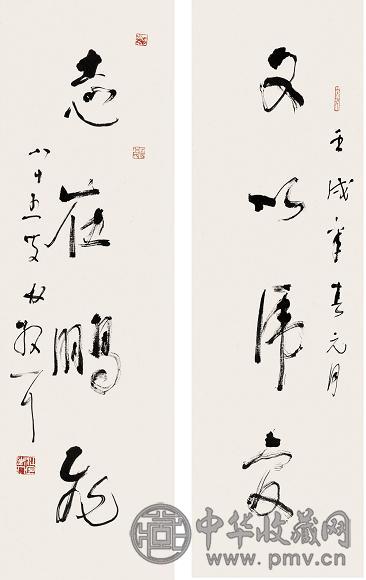 文以虎变
壬戌年春元月
志在鹏飞
八十五叟林散耳
中华收藏网
www.pmv.cn